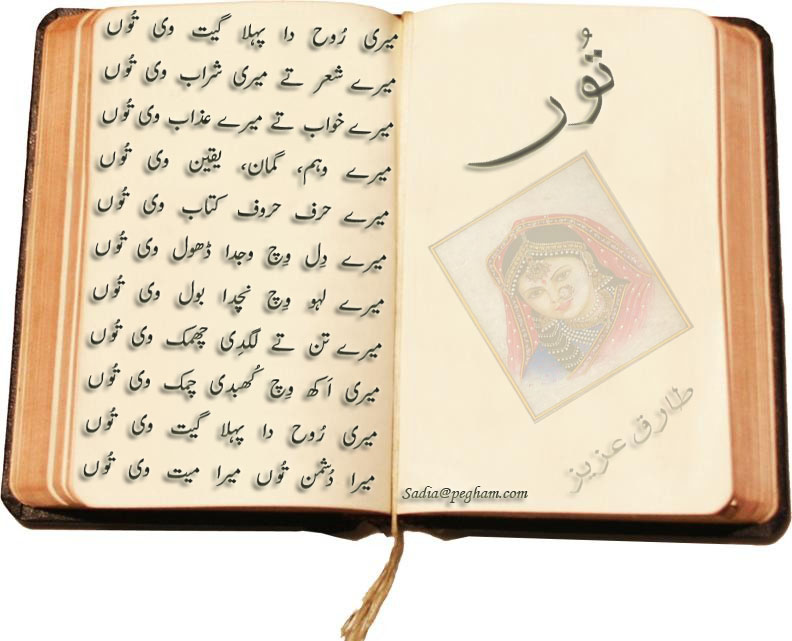 تُوں
طارق عزیز
میری رُوح دا پہلا گیت وی تُوں
میرے شعر تے میری شراب وی تُوں
میرے خواب تے میرے عذاب وی تُوں
میرے وہم، گمان، یقین وی تُوں
میرے حرف حروف کتاب وی تُوں
میرے دِل وِچ وجدا ڈھول وی تُوں
میرے لہو وِچ نچدا بول وی تُوں
میرے تن تے لگدِی چھمک وی تُوں
میری اَکھ وِچ کُھبدی چمک وی تُوں
میری رُوح دا پہلا گیت وی تُوں
میرا دُشمن تُوں میرا میت وی تُوں
Sadia@pegham.com